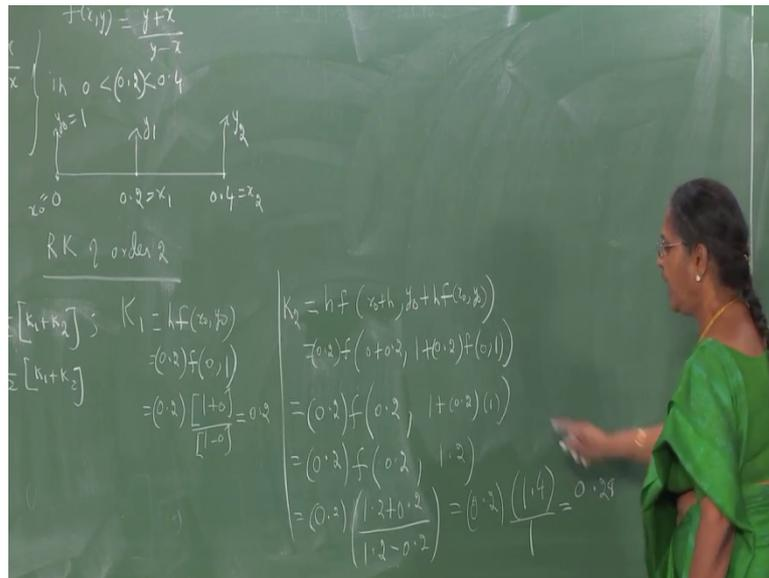 f(x,y) = y+x / y-x
x
in 0 < (0.2) < 0.4
y0=1
y1
y2
x0=0
0.2=x1
0.4=x2
RK of order 2
[K1+K2];
[K1+K2]
K1 = hf(x0,y0)
=(0.2)f(0,1)
=(0.2) [1+0] / [1-0] = 0.2
K2 = hf(x0+h, y0+hf(x0,y0))
=(0.2)f(0+0.2, 1+(0.2)f(0,1))
=(0.2)f(0.2, 1+(0.2)(1))
=(0.2)f(0.2, 1.2)
=(0.2)(1.2+0.2 / 1.2-0.2) = (0.2)(1.4)/1 = 0.28